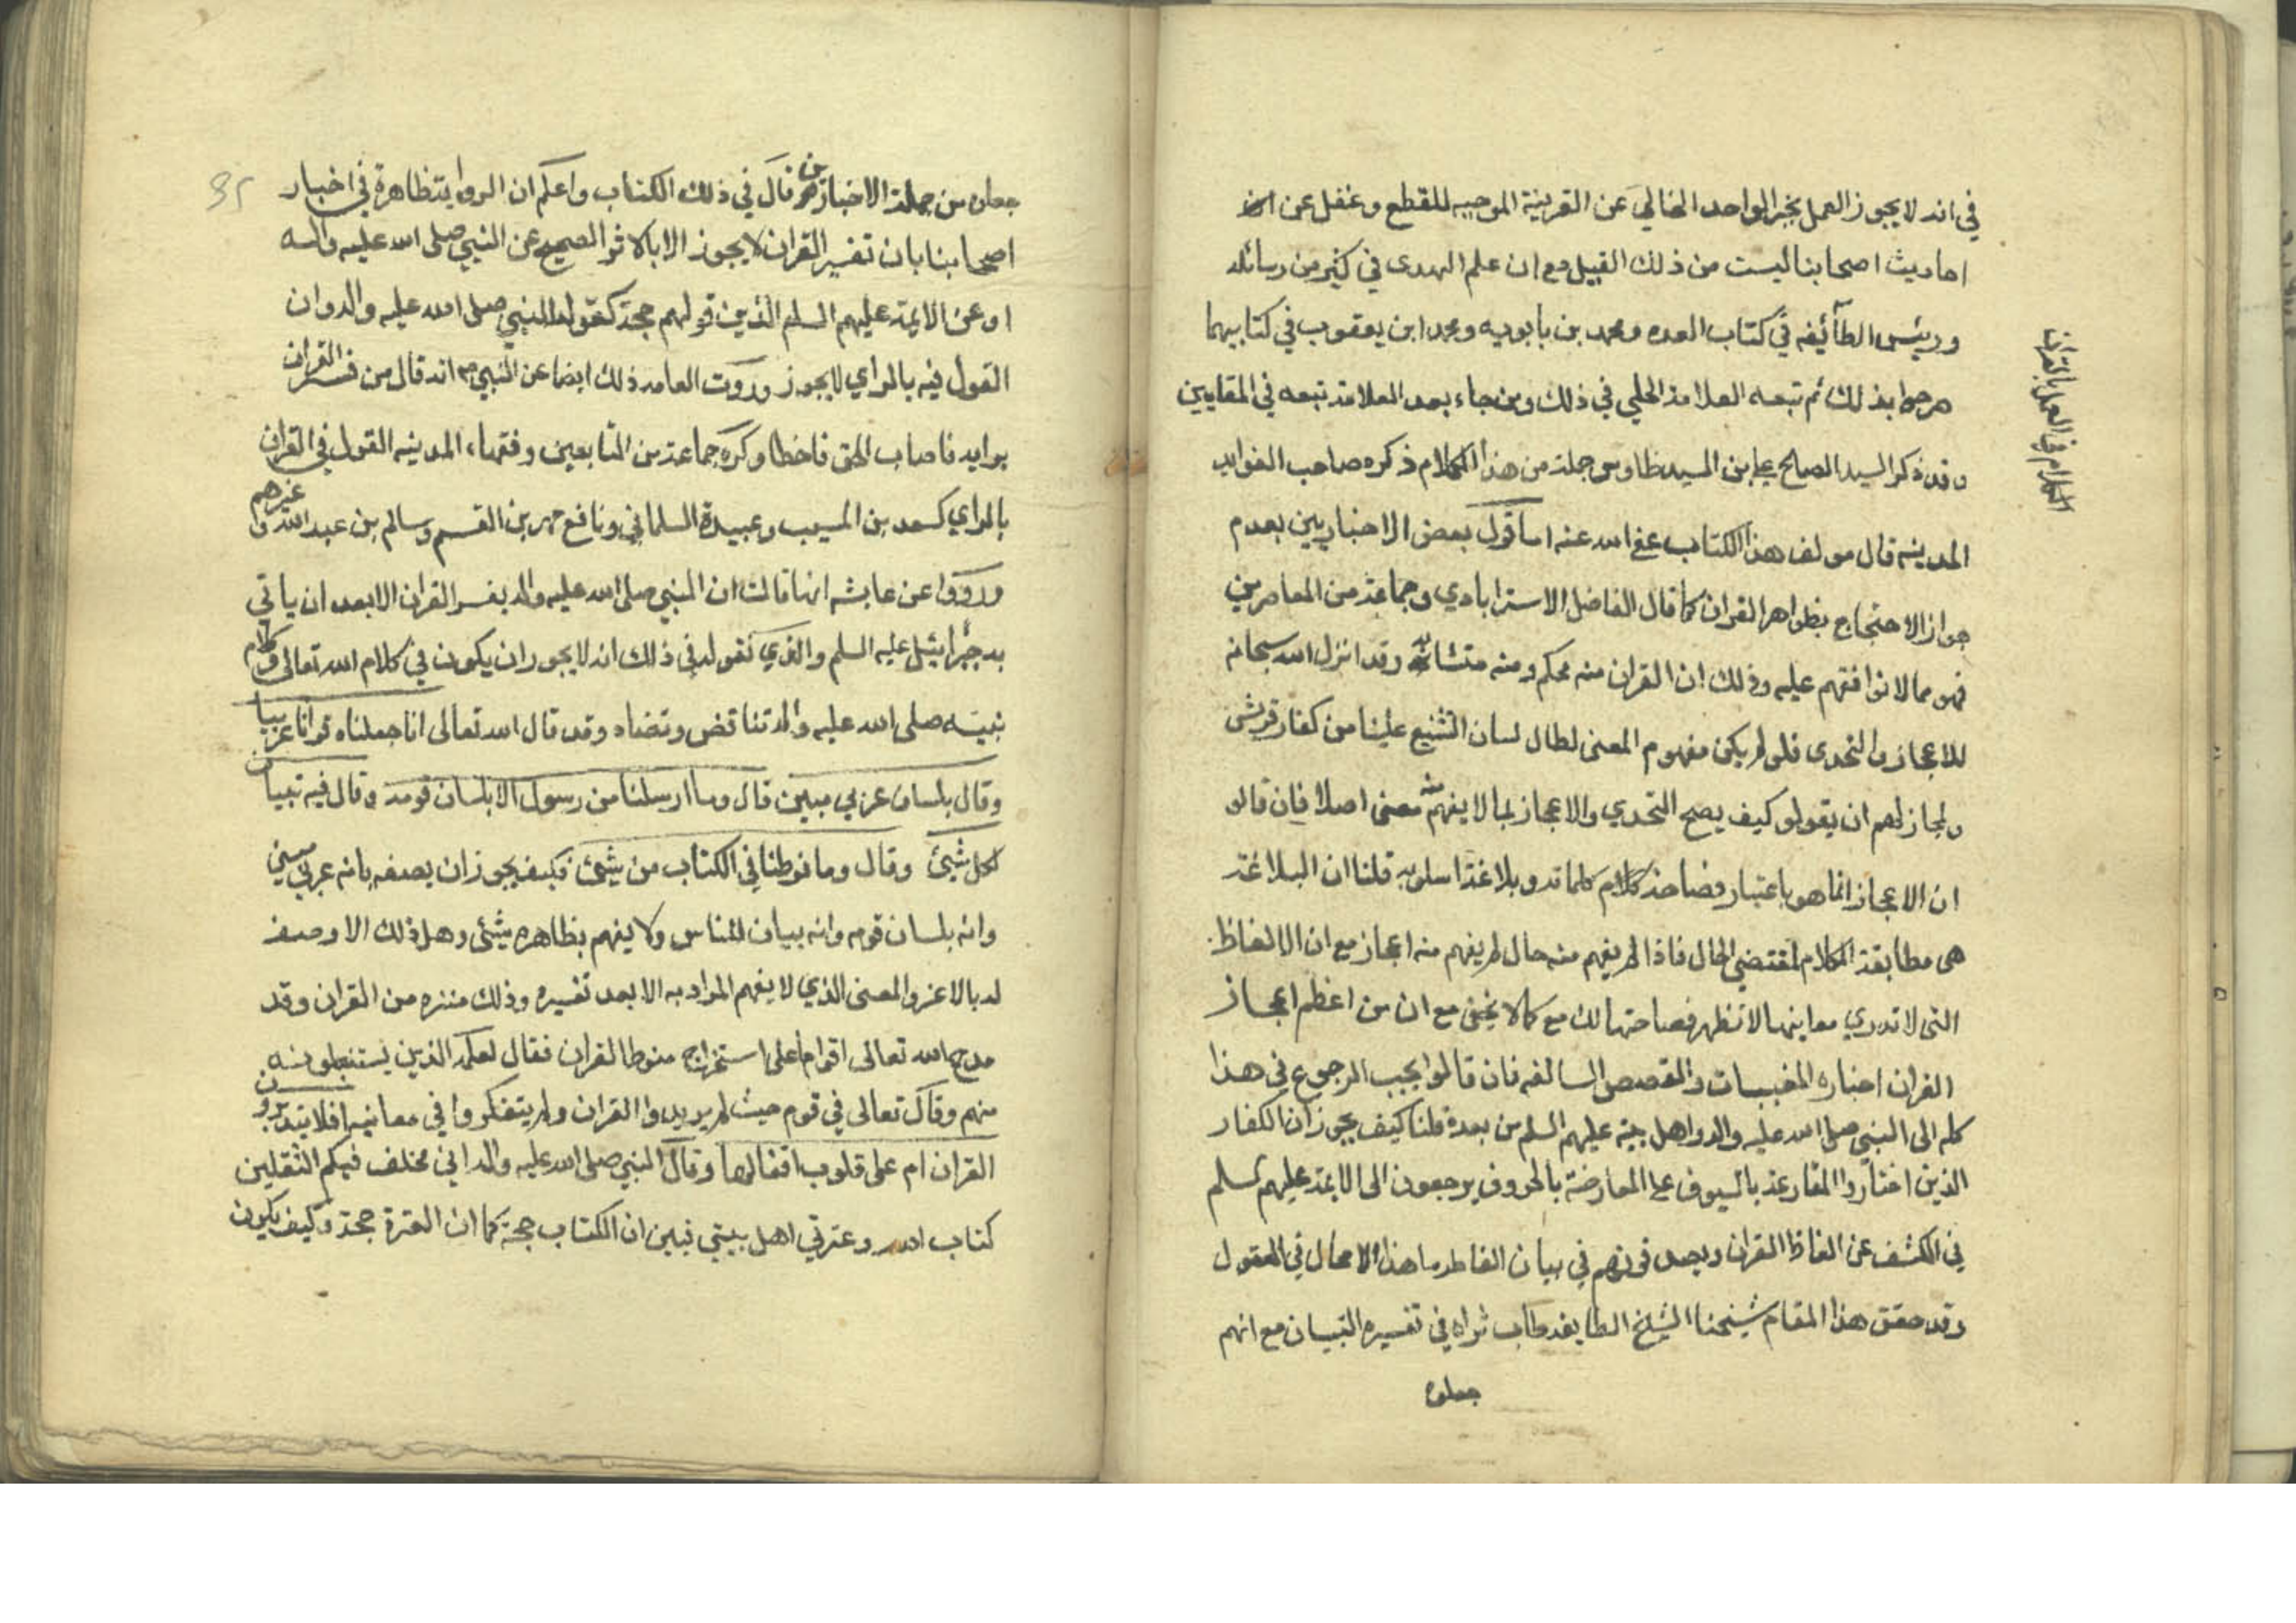 في انه لا يجوز العمل بخبر الواحد الخالي عن القرينة الموجبه للقطع وغفل عن ان
احاديث اصحابنا ليست من ذلك القبيل مع ان علم الهدى في كثير من رسائله
ورئيس الطآئيفه في كتاب العده ومحمد بن بابويه ومحمد ابن يعقوب في كتابيهما
صرحوا بذلك ثم تبعه العلامة الحلي في ذلك ومن جاء بعد العلامة تبعه في المقامين
وقد ذكر السيد الصالح علي بن السيد طاوس جملة من هذا الكلام ذكره صاحب الفوايد
المدينه قال مولف هذا الكتاب عفي الله عنه اما قول بعض الاخباريين بعدم
جواز الاحتجاج بظواهر القران كما قال الفاضل الاسترابادي وجماعة من المعاصرين
فهو مما لا نوافقهم عليه وذلك ان القران منه محكم ومنه متشابه وقد انزل الله سبحانه
للاعجاز والتحدى فلو لم يكن مفهوم المعنى لطال لسان التشنيع علينا من كفار قريش
ولجاز لهم ان يقولو كيف يصح التحدي والاعجاز بما لا يفهم منه معنى اصلا فان قالو
ان الاعجاز انما هو باعتبار فصاحة كلام كلماته وبلاغة اسلوبه قلنا ان البلاغة
هى مطابقة الكلام لمقتضي الحال فاذا لم يفهم منه حال لم يفهم منه اعجاز مع ان الالفاظ
التى لا تدري معاينها لا تظهر فصاحتها لك مع كما لا يخفى مع ان من اعظم اعجاز
القران اخباره المغيبات والقصص السالفه فان قالوا يجب الرجوع في هذا
كله الى النبي صلى الله عليه واله واهل بيته عليهم السلم من بعده قلنا كيف يجوز ان الكفار
الذين اختاروا المقارعة بالسيوف على المعارضة بالحروف يرجعون الى الايمة عليهم السلم
في الكشف عن الفاظ القران ويصدقونهم في بيان الفاظه ما هذا الا محال في العقول
وقد حقق هذا المقام شيخنا الشيخ الطايفه طاب ثراه في تفسيره التبيان مع انهم
جعلوه
الكلام في العمل بالقران
جعلوه من جملة الاخبارين قال في ذلك الكتاب واعلم ان الروايتظاهرة في اخبار
اصحابنا بان تفسير القران لا يجوز الا بالاثر الصحيح عن النبي صلى الله عليه واله
او عن الايمة عليهم السلم الذين قولهم حجة كقول النبي صلى الله عليه واله وان
القول فيه بالراي لا يجوز وروت العامه ذلك ايضا عن النبي ص انه قال من فسر القران
برايه فاصاب الحق فاخطا وكره جماعة من التابعين وفقهاء المدينه القول في القران
بالراي كسعد بن المسيب وعبيدة السلماني ونافع بن القسم وسالم بن عبد الله وغيرهم
ورووا عن عايشه انها قالت ان النبي صلى الله عليه واله يفسر القران الا بعد ان ياتي
به جبرائيل عليه السلم والذي نقوله في ذلك انه لا يجوز ان يكون في كلام الله تعالى وكلام
نبيه صلى الله عليه واله تناقض وتضاد وقد قال الله تعالى انا جعلناه قرانا عربيا
وقال بلسان عربي مبين قال وما ارسلنا من رسول الا بلسان قومه وقال فيه تبيان
لكل شيئ وقال وما فرطنا في الكتاب من شيئ فكيف يجوز ان يصفه بانه عربي مبين
وانه بلسان قومه وانه بيان للناس ولا يفهم بظاهره شيئ وهل ذلك الا وصف
له بالالغز والمعنى الذي لا يفهم المراد به الا بعد تفسيره وذلك منزه من القران وقد
مدح الله تعالى اقواما على استخراج القران فقال لعلمه الذين يستنبطونه
منهم وقال تعالى في قوم حيث لم يريدوا القران ولم يتفكروا في معانيه افلا يتدبرون
القران ام على قلوب اقفالها وقال النبي صلى الله عليه واله اني مخلف فيكم الثقلين
كتاب الله وعترتي اهل بيتي فبين ان الكتاب حجة كما ان العترة حجة وكيف يكون